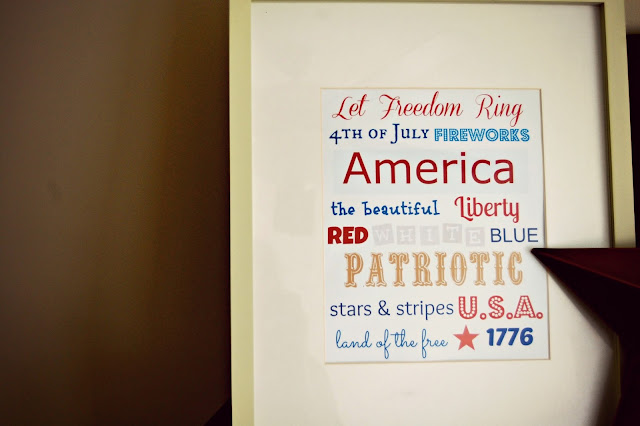 Let Freedom Ring
4TH OF JULY FIREWORKS
America
the beautiful Liberty
RED WHITE BLUE
PATRIOTIC
stars & stripes U.S.A.
land of the free 1776